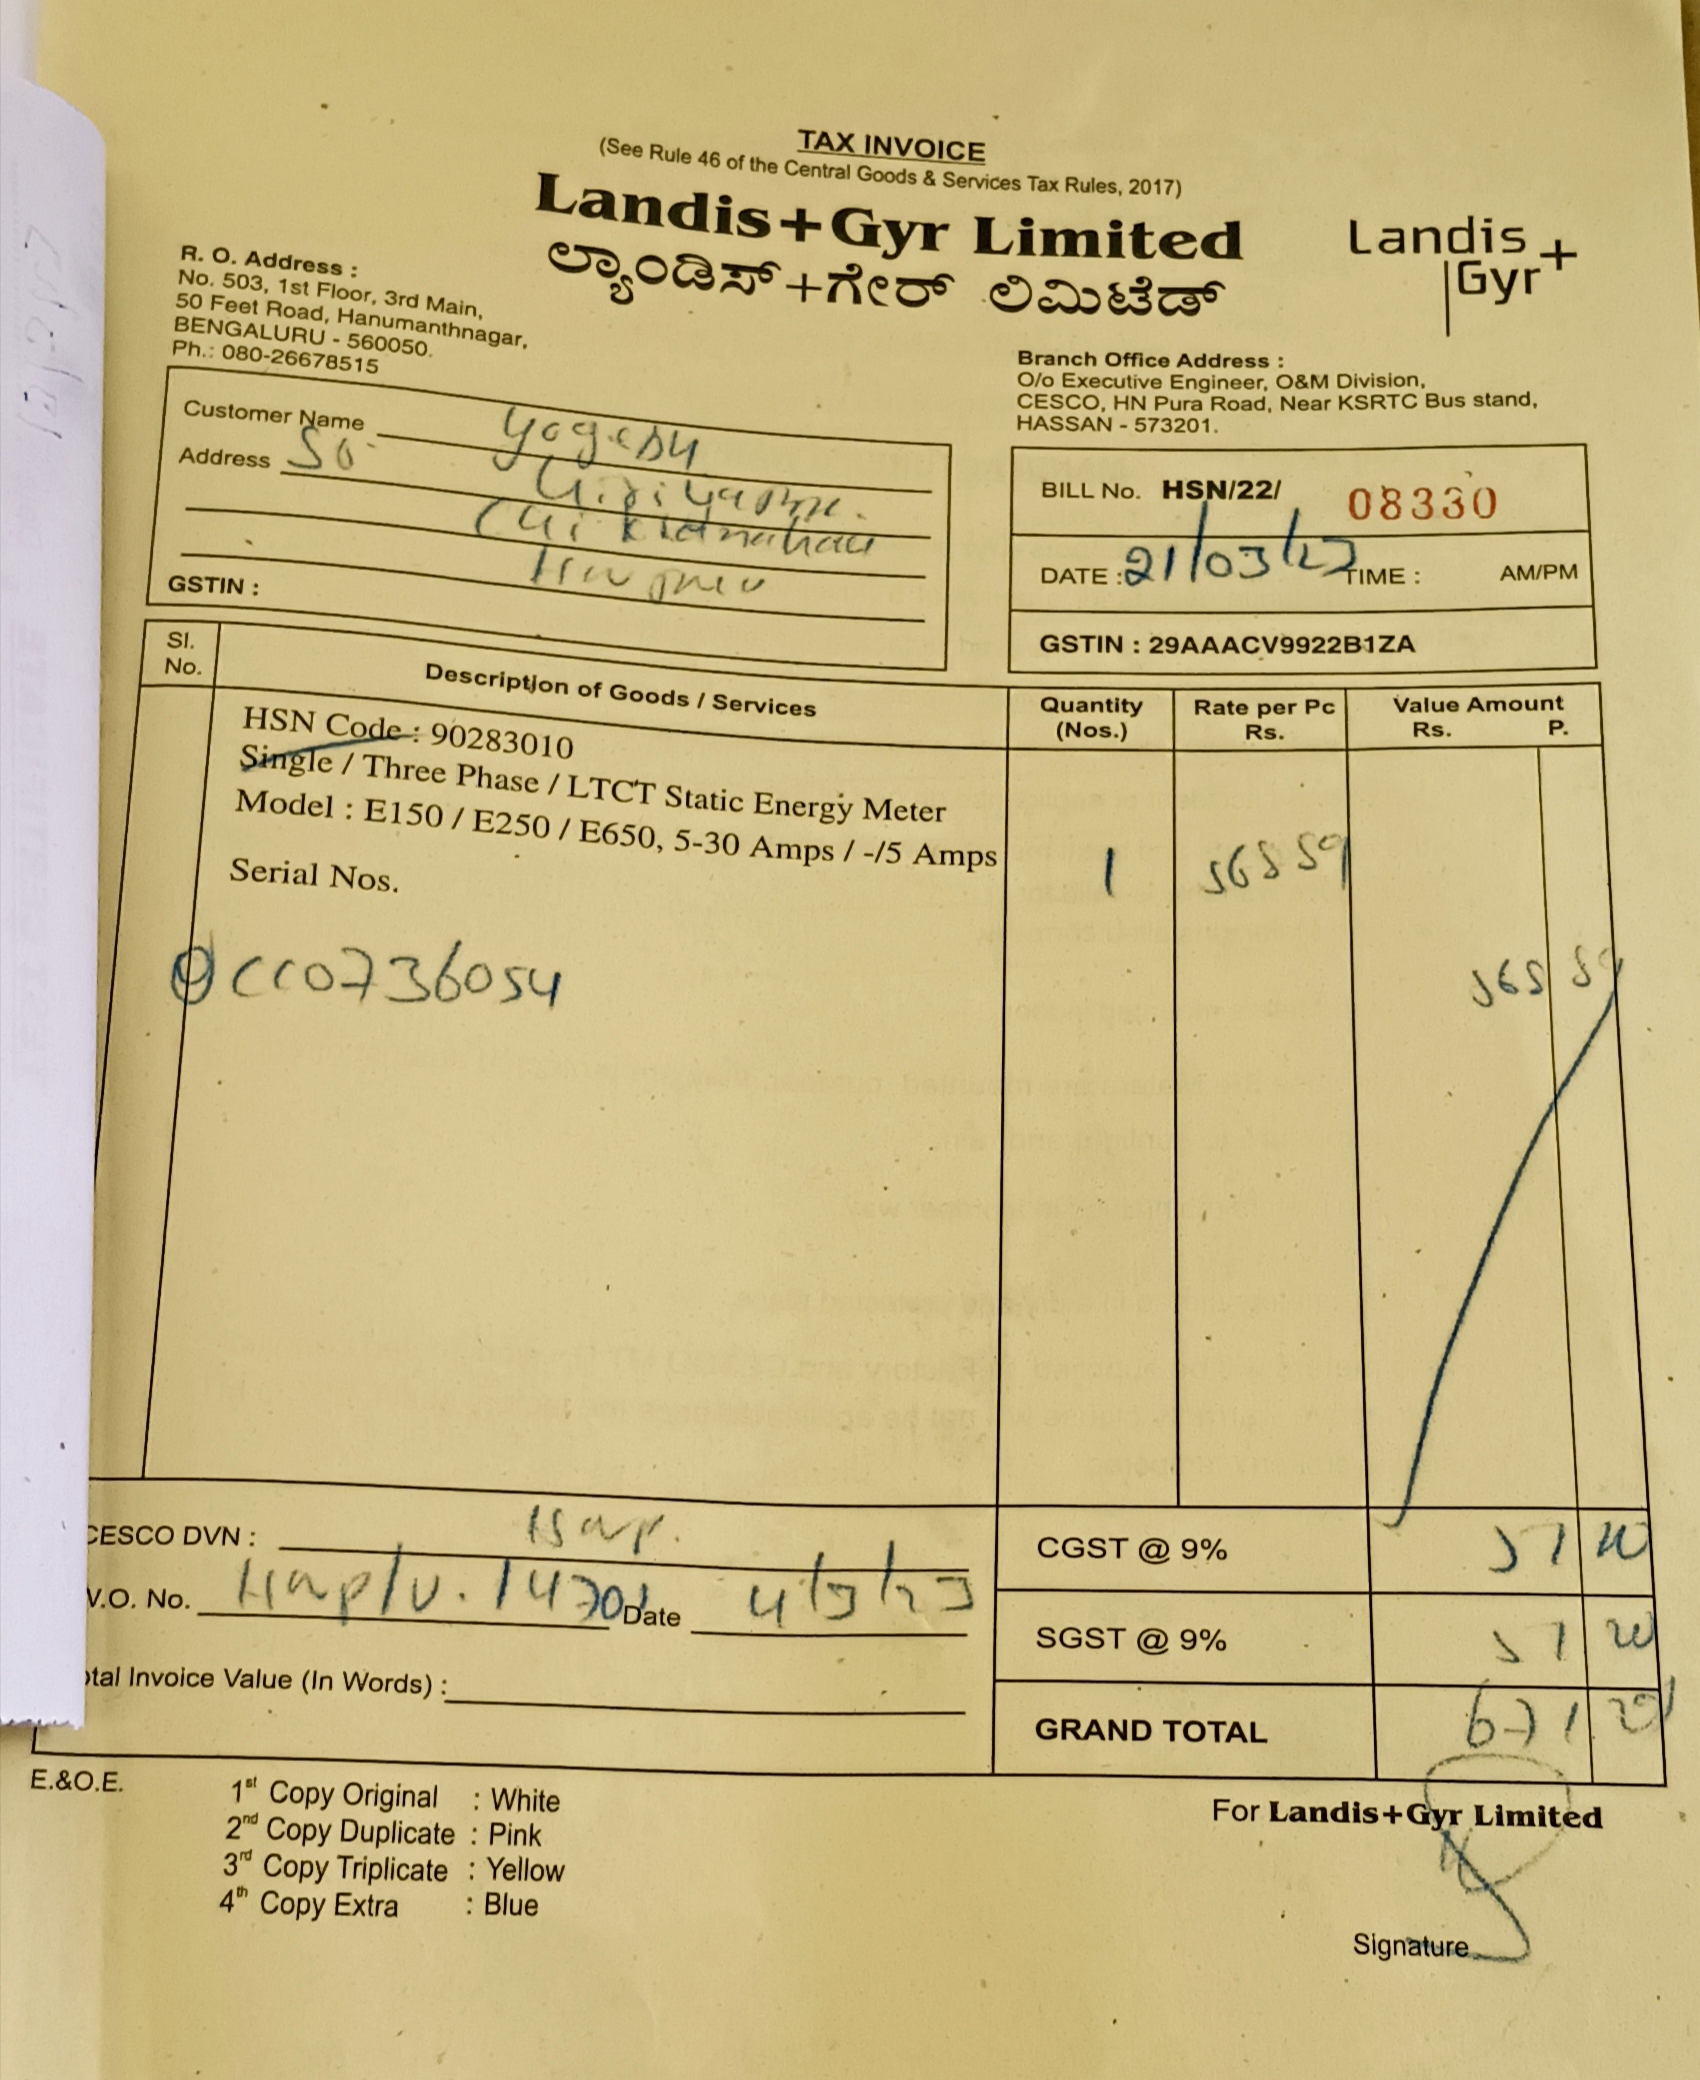 TAX INVOICE
(See Rule 46 of the Central Goods & Services Tax Rules, 2017)
Landis+Gyr Limited
ಲ್ಯಾಂಡಿಸ್+ಗೇರ್ ಲಿಮಿಟೆಡ್
Landis
Gyr+
R. O. Address :
No. 503, 1st Floor, 3rd Main,
50 Feet Road, Hanumanthnagar,
BENGALURU - 560050.
Ph.: 080-26678515
Branch Office Address :
O/o Executive Engineer, O&M Division,
CESCO, HN Pura Road, Near KSRTC Bus stand,
HASSAN - 573201.
Customer Name Yogesh
Address So
GSTIN :
BILL No. HSN/22/ 08330
DATE : 21/03/23 TIME : AM/PM
GSTIN : 29AAACV9922B1ZA
Sl. No. Description of Goods / Services Quantity (Nos.) Rate per Pc Rs. Value Amount Rs. P.
HSN Code : 90283010
Single / Three Phase / LTCT Static Energy Meter
Model : E150 / E250 / E650, 5-30 Amps / -/5 Amps
Serial Nos. 1 568 59
CC0736054 568 59
CESCO DVN :
V.O. No. Date 4/3/23
CGST @ 9% 51 20
SGST @ 9% 51 20
otal Invoice Value (In Words) :
GRAND TOTAL 671
E.&O.E.
1st Copy Original : White
2nd Copy Duplicate : Pink
3rd Copy Triplicate : Yellow
4th Copy Extra : Blue
For Landis+Gyr Limited
Signature